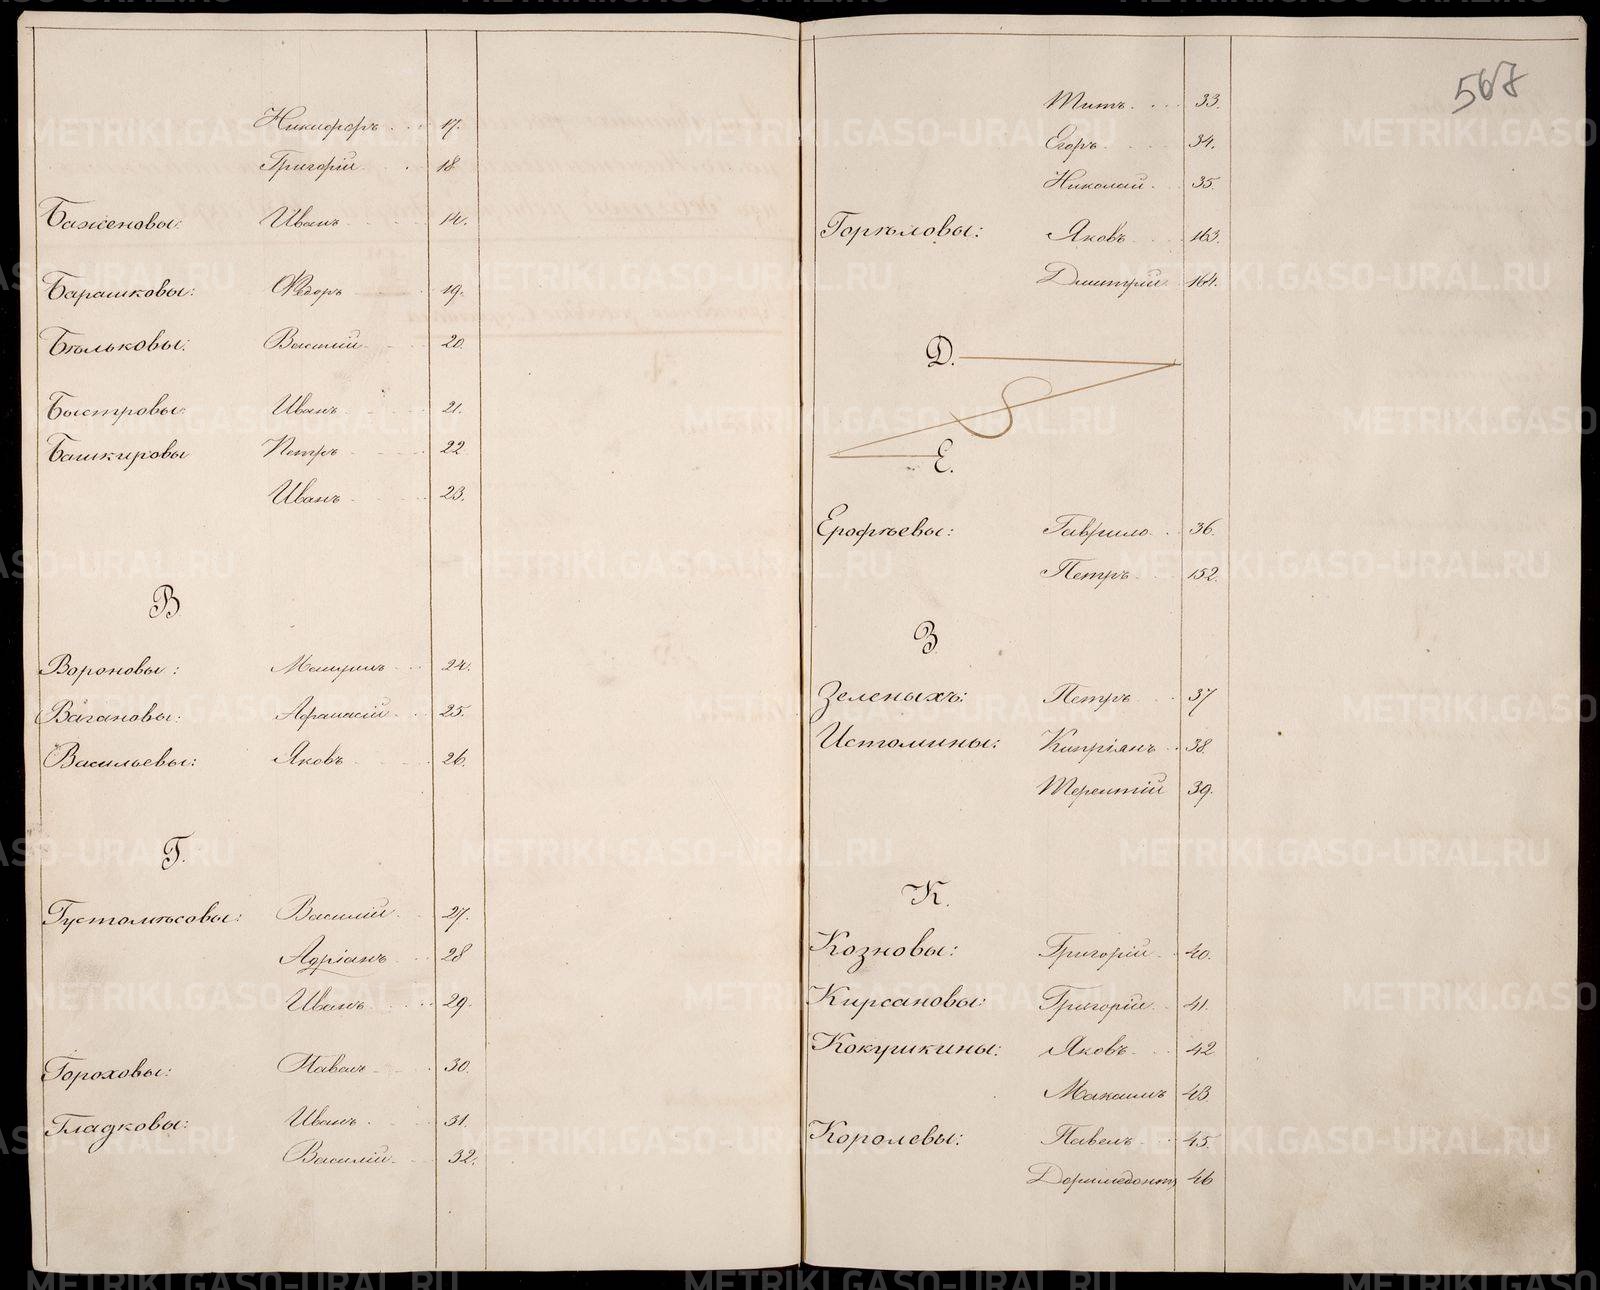 Никифоръ 17.
Григорій 18
Баженовы: Иванъ 14.
Барашковы: Ѳедоръ 19.
Бѣльковы: Василій 20.
Быстровы: Иванъ 21.
Башкировы Петръ 22
Иванъ 23.
В
Вороновы: 24.
Вагановы: Афанасій 25.
Васильевы: Яковъ 26.
Г.
Густомѣсовы: Василій 27.
Адріанъ 28
Иванъ 29.
Гороховы: Павелъ 30.
Гладковы: Иванъ 31.
Василій 32.
567
Титъ 33.
Егоръ 34.
Николай 35.
Горѣловы: Яковъ 163.
Дмитрій 164.
Д.
Е.
Ерофѣевы: Гаврило 36.
Петръ 152.
З
Зеленыхъ: Петръ 37
Истомины: Кипріянъ 38.
Терентій 39.
К.
Козновы: Григорій 40.
Кирсановы: Григорій 41.
Кокушкины: Яковъ 42
Максимъ 43.
Королевы: Павелъ 45
Доримедонтъ 46
METRIKI.GASO-URAL.RU